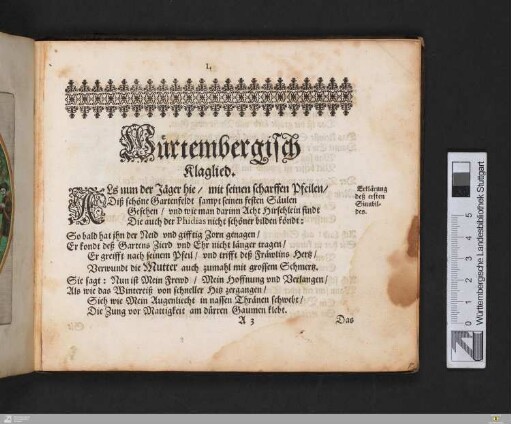 1.
Würtembergisch
Klaglied.
ALs nun der Jäger hie / mit seinen scharffen Pfeilen /
Diß schöne Gartenfeldt sampt seinen festen Säulen
Gesehen / vnd wie man darinn Acht Hirschlein findt
Die auch der Phidias nicht schöner bilden köndt:
So bald hat ihn der Neid vnd gifftig Zorn genagen /
Er kondt deß Gartens Zierd vnd Ehr nicht länger tragen /
Er greifft nach seinem Pfeil / vnd trifft deß Fräwlins Hertz /
Verwundt die Mutter auch zumahl mit grossem Schmertz.
Sie sagt: Nun ist Mein Frewd / Mein Hoffnung vnd Verlangen /
Als wie das Wintereiß von schneller Hitz zergangen /
Sieh wie Mein Augenliecht in nassen Thränen schwebt /
Die Zung vor Mattigkeit am dürren Gaumen klebt.
A 3 Das
Erklärung
deß ersten
Sinnbil-
des.
Württembergische Landesbibliothek Stuttgart